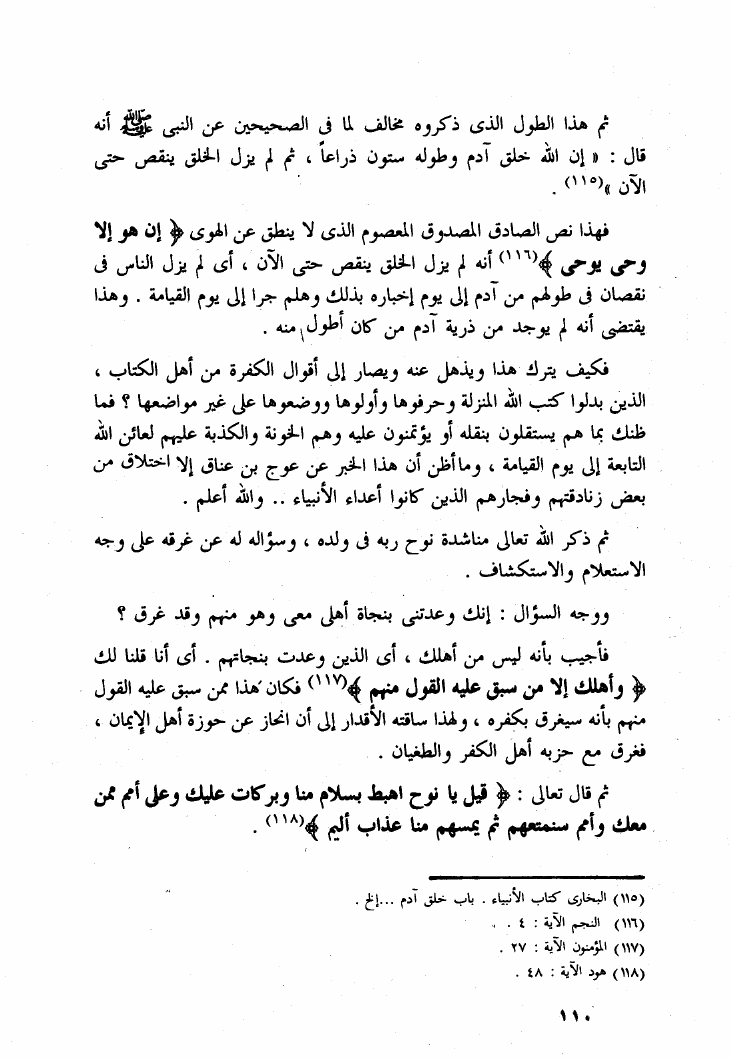 ثم هذا الطول الذى ذكروه مخالف لما فى الصحيحين عن النبى ﷺ أنه
قال : « إن الله خلق آدم وطوله ستون ذراعاً ، ثم لم يزل الخلق ينقص حتى
الآن »(١١٥) .
فهذا نص الصادق المصدوق المعصوم الذى لا ينطق عن الهوى ﴿ إن هو إلا
وحى يوحى ﴾(١١٦) أنه لم يزل الخلق ينقص حتى الآن ، أى لم يزل الناس فى
نقصان فى طولهم من آدم إلى يوم إخباره بذلك وهلم جرا إلى يوم القيامة . وهذا
يقتضى أنه لم يوجد من ذرية آدم من كان أطول منه .
فكيف يترك هذا ويذهل عنه ويصار إلى أقوال الكفرة من أهل الكتاب ،
الذين بدلوا كتب الله المنزلة وحرفوها وأولوها ووضعوها على غير مواضعها ؟ فما
ظنك بما هم يستقلون بنقله أو يؤتمنون عليه وهم الخونة والكذبة عليهم لعائن الله
التابعة إلى يوم القيامة ، وماأظن أن هذا الخبر عن عوج بن عناق إلا اختلاق من
بعض زنادقتهم وفجارهم الذين كانوا أعداء الأنبياء .. والله أعلم .
ثم ذكر الله تعالى مناشدة نوح ربه فى ولده ، وسؤاله له عن غرقه على وجه
الاستعلام والاستكشاف .
ووجه السؤال : إنك وعدتنى بنجاة أهلى معى وهو منهم وقد غرق ؟
فأجيب بأنه ليس من أهلك ، أى الذين وعدت بنجاتهم . أى أنا قلنا لك
﴿ وأهلك إلا من سبق عليه القول منهم ﴾(١١٧) فكان هذا ممن سبق عليه القول
منهم بأنه سيغرق بكفره ، ولهذا ساقته الأقدار إلى أن انحاز عن حوزة أهل الإيمان ،
فغرق مع حزبه أهل الكفر والطغيان .
ثم قال تعالى : ﴿ قيل يا نوح اهبط بسلام منا وبركات عليك وعلى أمم ممن
معك وأمم سنمتعهم ثم يمسهم منا عذاب أليم ﴾(١١٨) .
(١١٥) البخارى كتاب الأنبياء . باب خلق آدم ...إلخ .
(١١٦) النجم الآية : ٤ .
(١١٧) المؤمنون الآية : ٢٧ .
(١١٨) هود الآية : ٤٨ .
١١٠